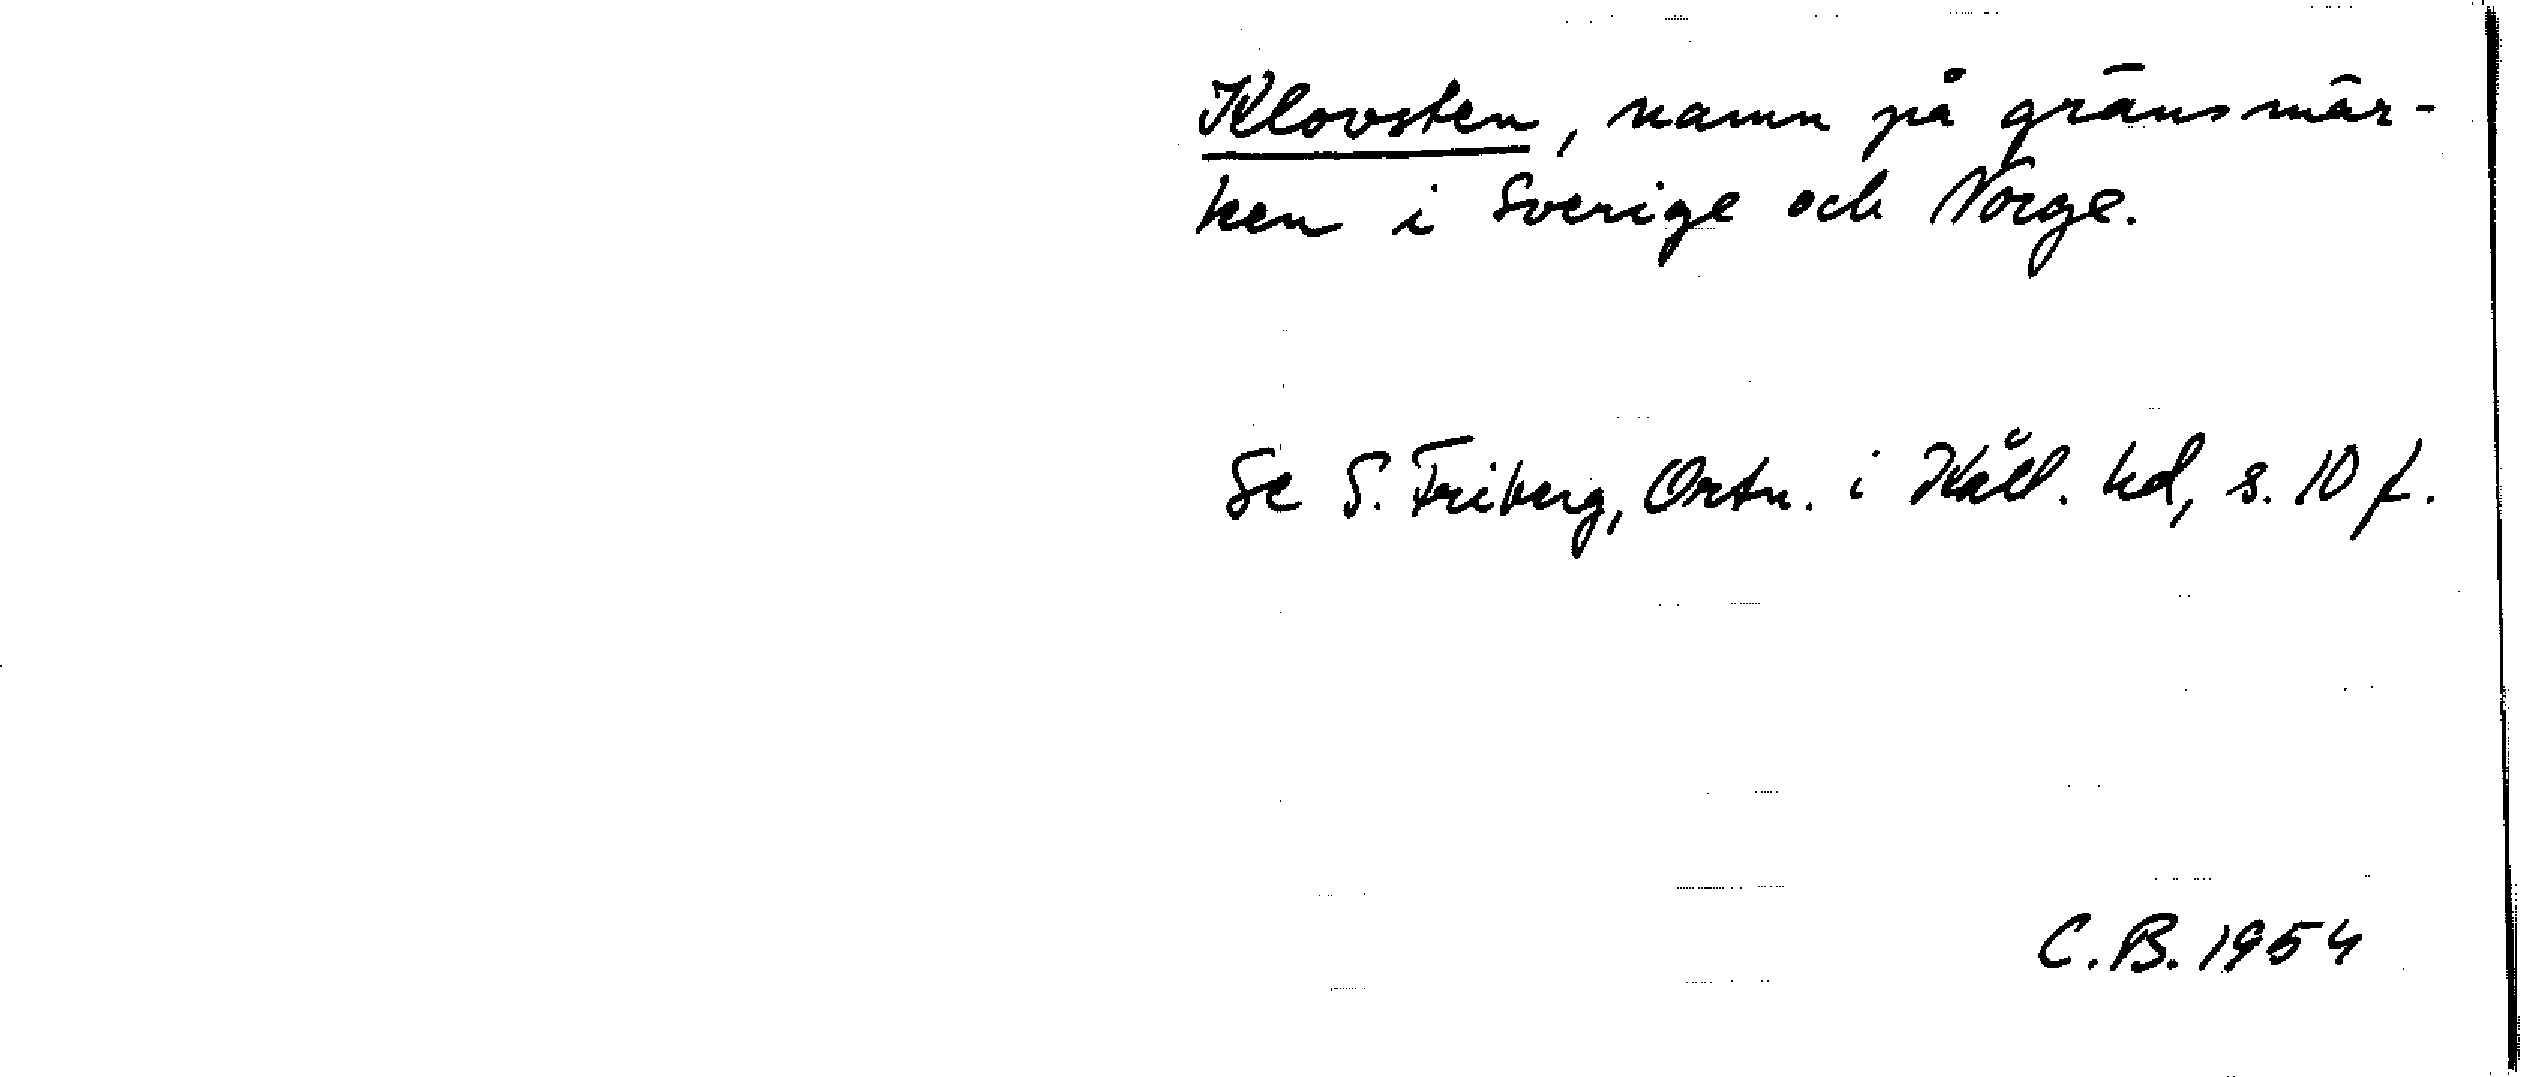 Klovsten, namn på gränsmär-
ken i Sverige och Norge.
Se S. Friberg, Ortn. i Kåll. hd, s. 10 f.
C.B. 1954